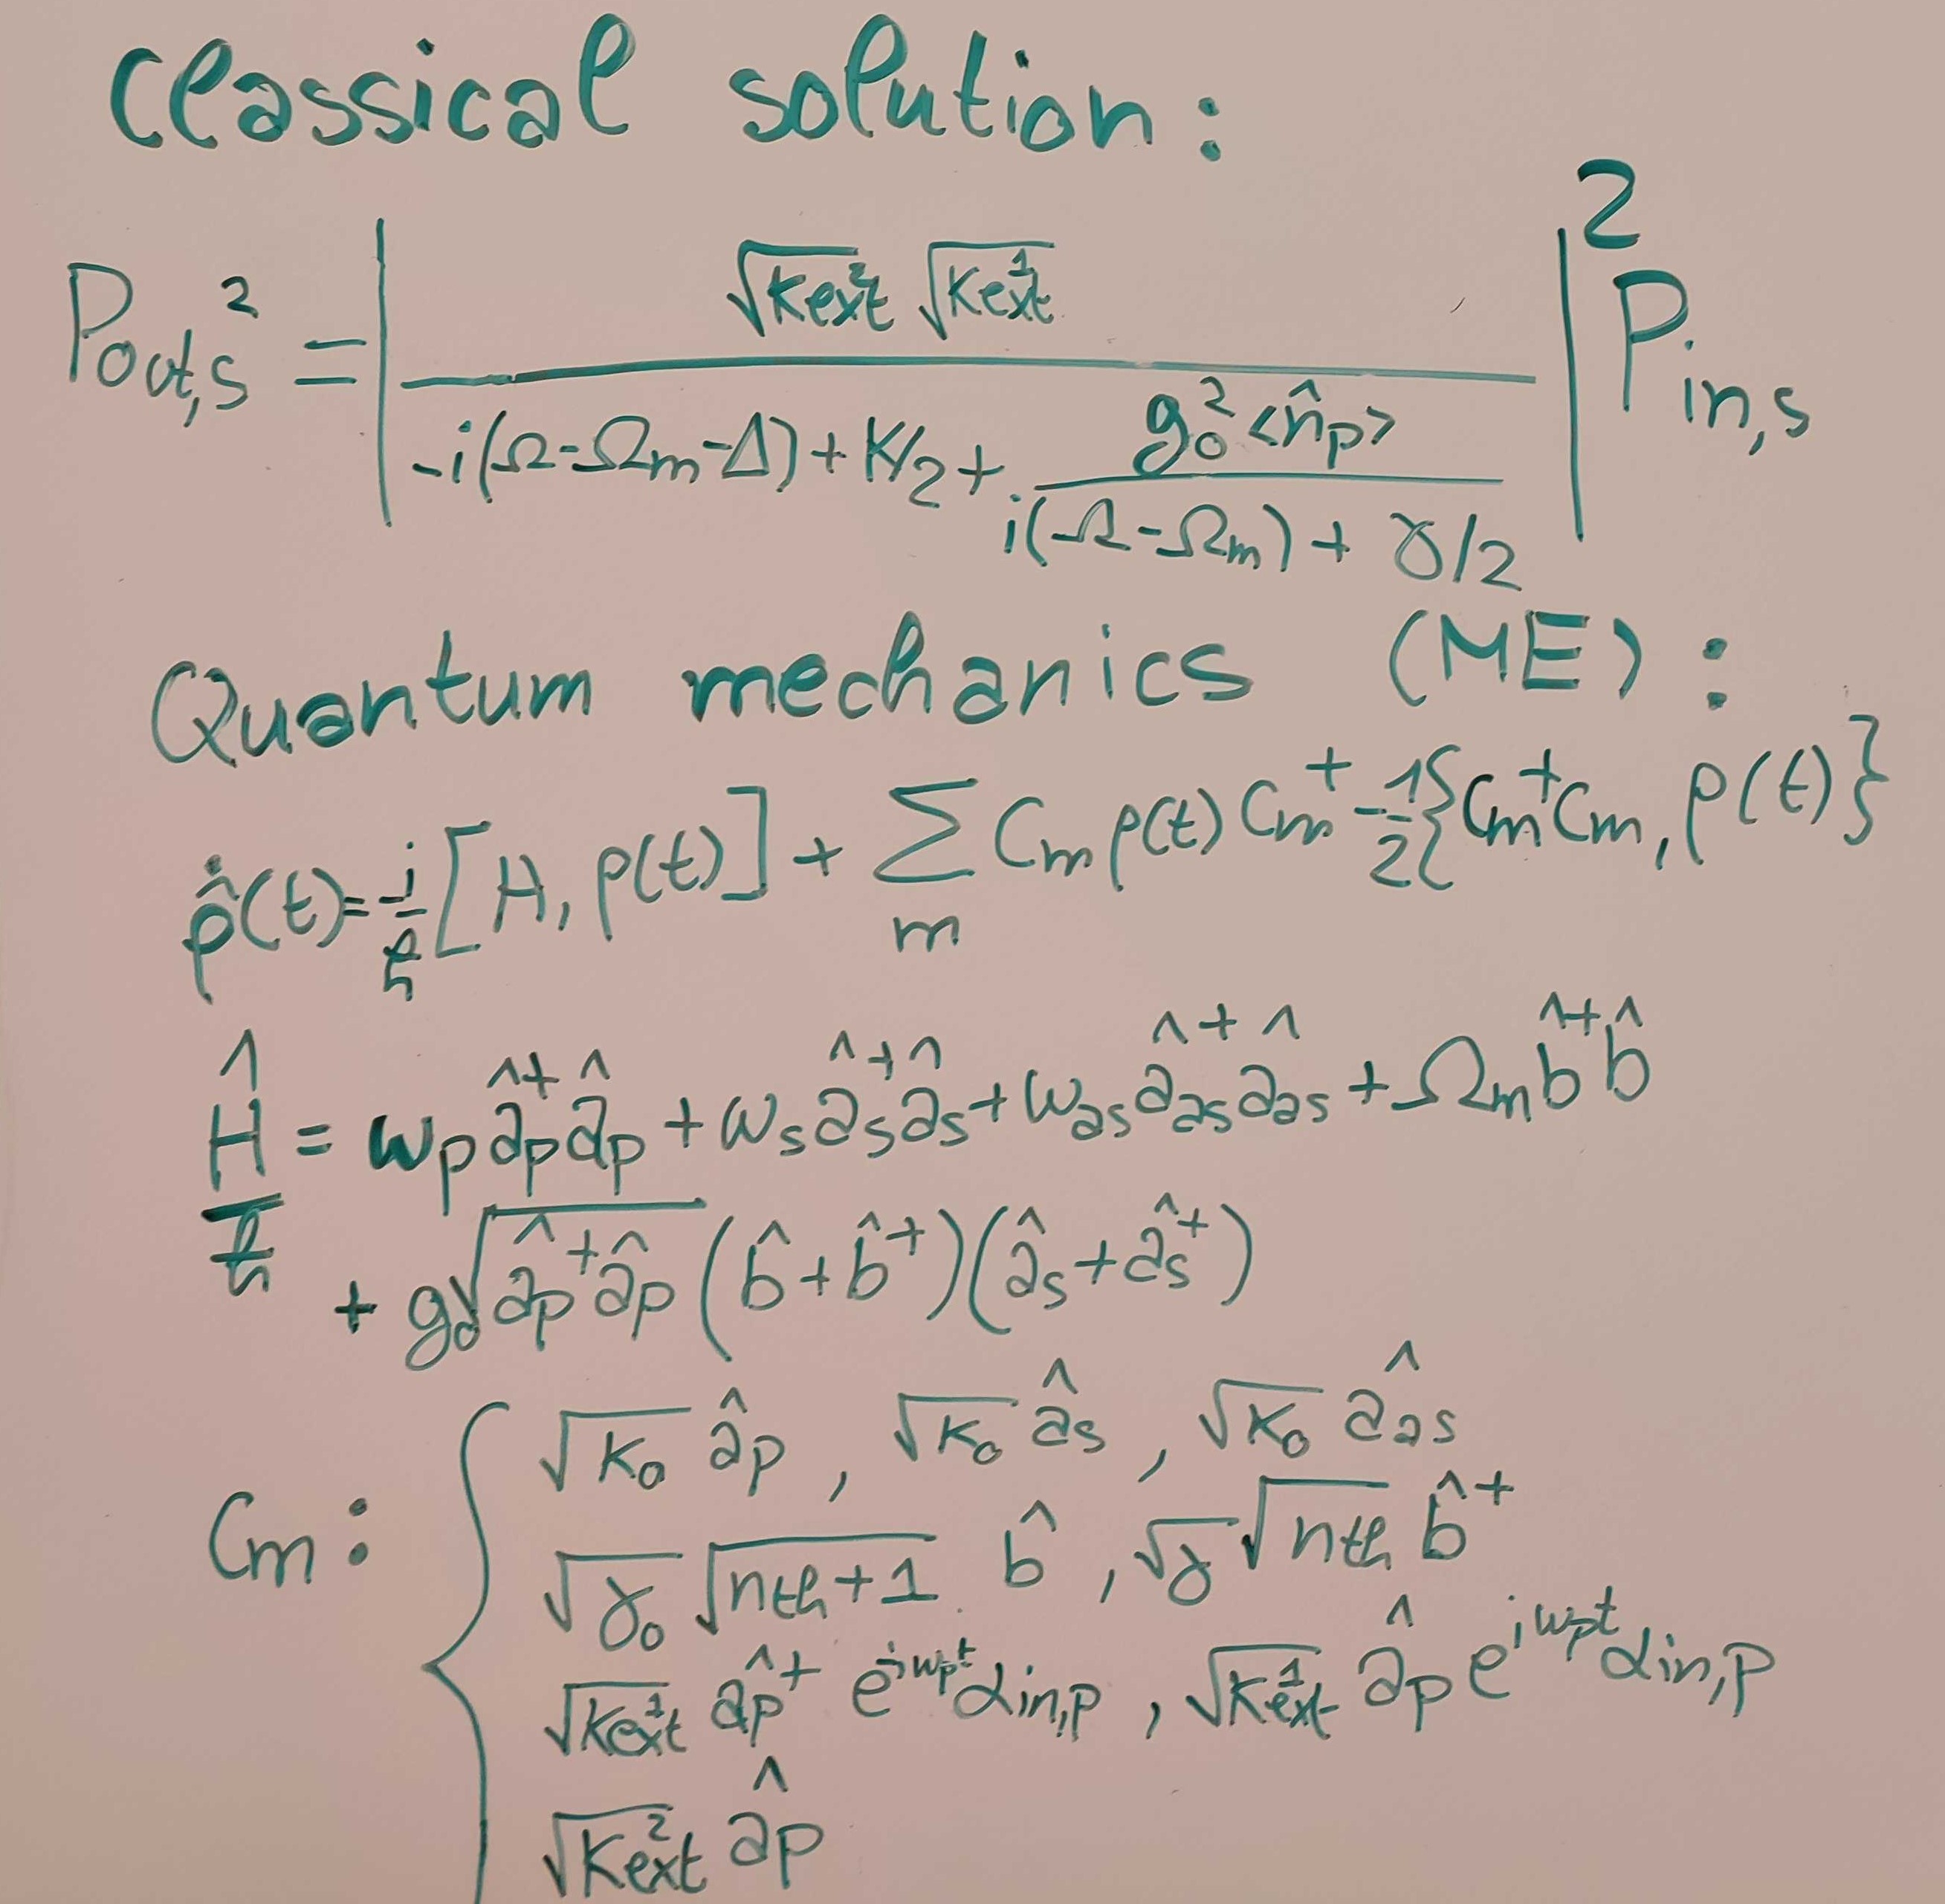 Classical solution:
P_{out,s}^2 = | \frac{\sqrt{K_{ext}^2} \sqrt{K_{ext}^1}}{-i(Ω-Ω_m-Δ)+K/2+\frac{g_0^2 <\hat{n}_p>}{i(Ω-Ω_m)+γ/2}} |^2 P_{in,s}
Quantum mechanics (ME):
\dot{\hat{ρ}}(t)=-\frac{i}{ħ}[H, ρ(t)] + \sum_m C_m ρ(t) C_m^+ - \frac{1}{2}{C_m^+ C_m, ρ(t)}
\frac{\hat{H}}{ħ} = ω_p \hat{a}_p^+ \hat{a}_p + ω_s \hat{a}_s^+ \hat{a}_s + ω_{as} \hat{a}_{as}^+ \hat{a}_{as} + Ω_m \hat{b}^+ \hat{b}
+ g_0 \sqrt{\hat{a}_p^+ \hat{a}_p} (\hat{b} + \hat{b}^+)(\hat{a}_s + \hat{a}_s^+)
C_m: { \sqrt{K_0} \hat{a}_p, \sqrt{K_0} \hat{a}_s, \sqrt{K_0} \hat{a}_{as}
\sqrt{γ_0} \sqrt{n_{th}+1} \hat{b}, \sqrt{γ} \sqrt{n_{th}} \hat{b}^+
\sqrt{K_{ext}^1} \hat{a}_p^+ e^{-iω_p t} α_{in,p}, \sqrt{K_{ext}^1} \hat{a}_p e^{iω_p t} α_{in,p}
\sqrt{K_{ext}^2} \hat{a}_p